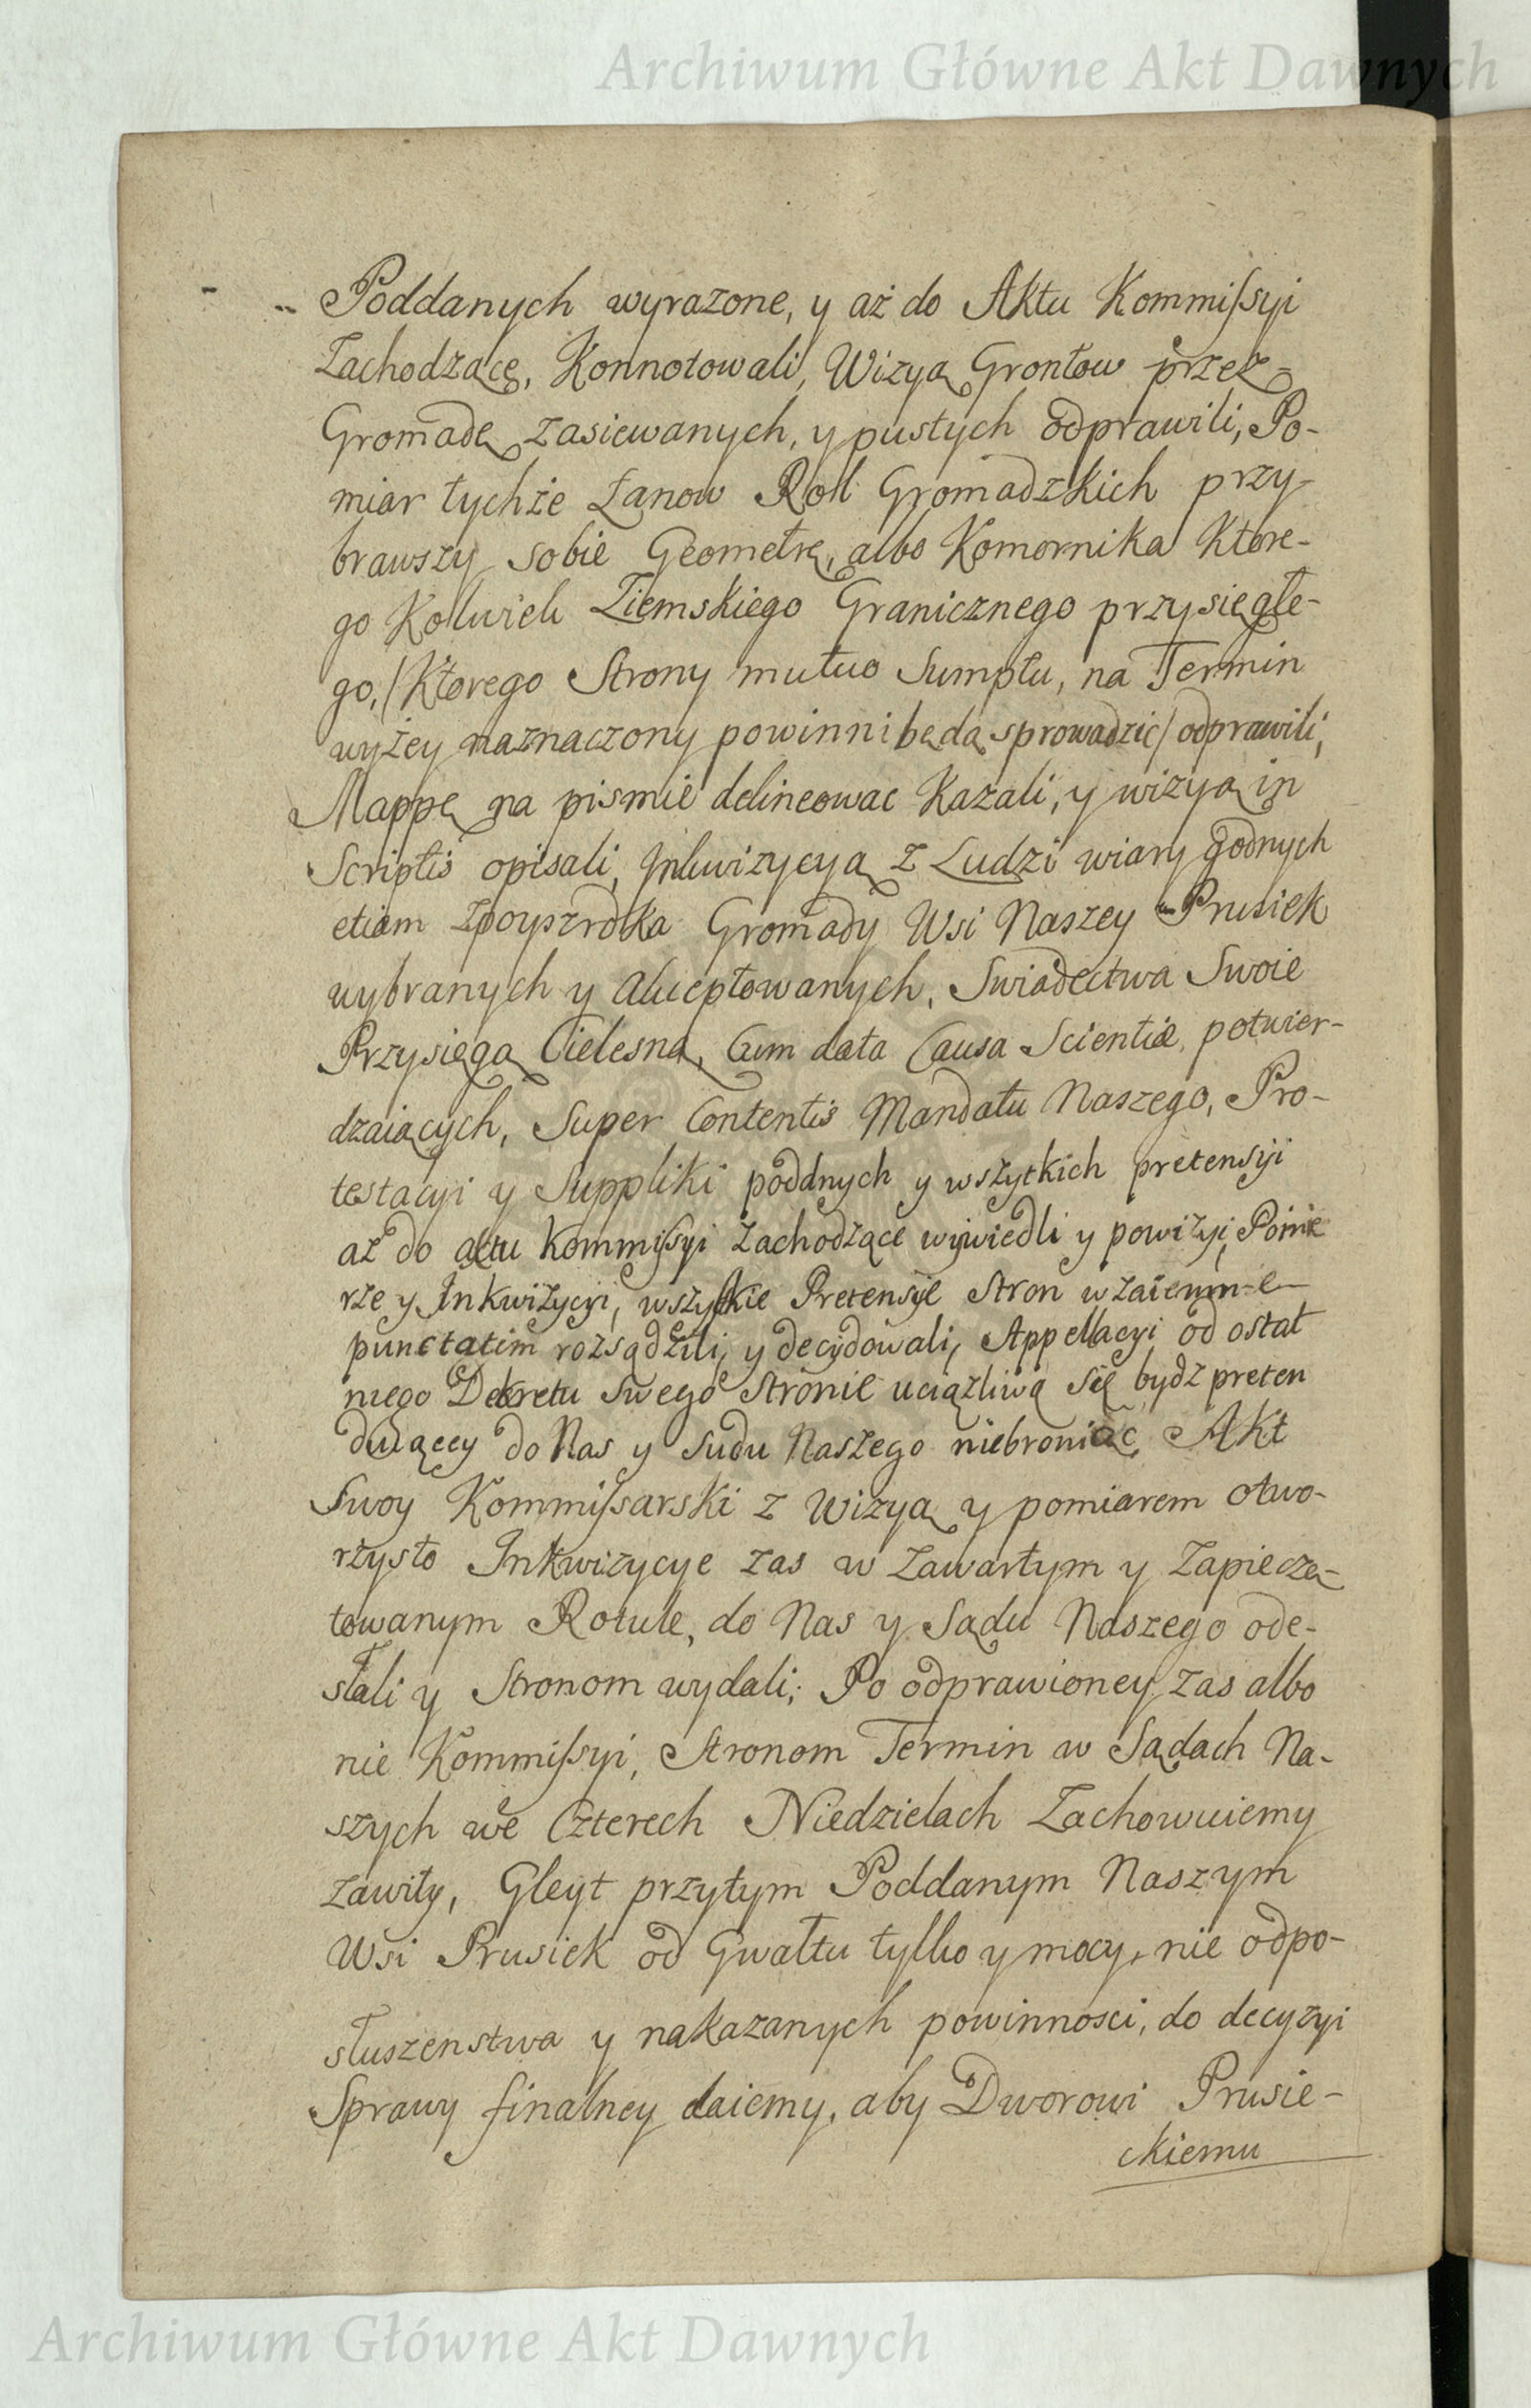 Archiwum Główne Akt Dawnych
Poddanych wyrazone, y aż do Aktu Kommissyi
Zachodzącę, Konnotowali, Wizyą Grontow przez
Gromadę zasiewanych, y pustych odprawili, Po-
miar tychże Łanow Roll Gromadzkich przy-
brawszy sobie Geometrę, albo Komornika Ktore-
go Kolwiek Ziemskiego Granicznego przysięgłe-
go, /Ktorego Strony mutuo Sumptu, na Termin
wyżey naznaczony powinni będą sprowadzic/ odprawili,
Mappę na pismie delineowac Kazali, y wizyą in
Scriptis opisali, Inkwizycyą z Ludzi wiary godnych
etiam zpoyszrodka Gromady Wsi Naszey Prusiek
wybranych y akceptowanych, Swiadectwa Swoie
Przysięgą Cielesną, Cum data Causa Scientiæ, potwier-
dzaiących, Super Contentis Mandatu Naszego, Pro-
testacyi y Suppliki poddnych y wszytkich pretensyi
aż do actu Kommissyi zachodzące wywiedli y powizyi, Pomie
rze y Inkwizycyi, wszytkie Pretensye Stron wzaiemne
punctatim rozsądzili, y decydowali, Appellacyi od ostat
niego Dekretu swego Stronie uciążliwą się bydz preten
duiącey do Nas y Sudu Naszego niebroniąc, Akt
Swoy Kommissarski z Wizyą y pomiarem otwo-
rzysto Inkwizycye zas w zawartym y Zapieczę-
towanym Rotule, do Nas y Sądu Naszego ode-
słali y Stronom wydali; Po odprawioney zas albo
nie Kommissyi, Stronom Termin w Sądach Na-
szych we Czterech Niedzielach Zachowuiemy
zawity, Gleyt przytym Poddanym Naszym
Wsi Prusiek od Gwałtu tylko y mocy, nie odpo-
słuszenstwa y nakazanych powinnosci, do decyzyi
Sprawy finalney daiemy, aby Dworowi Prusie-
ckiemu
Archiwum Główne Akt Dawnych